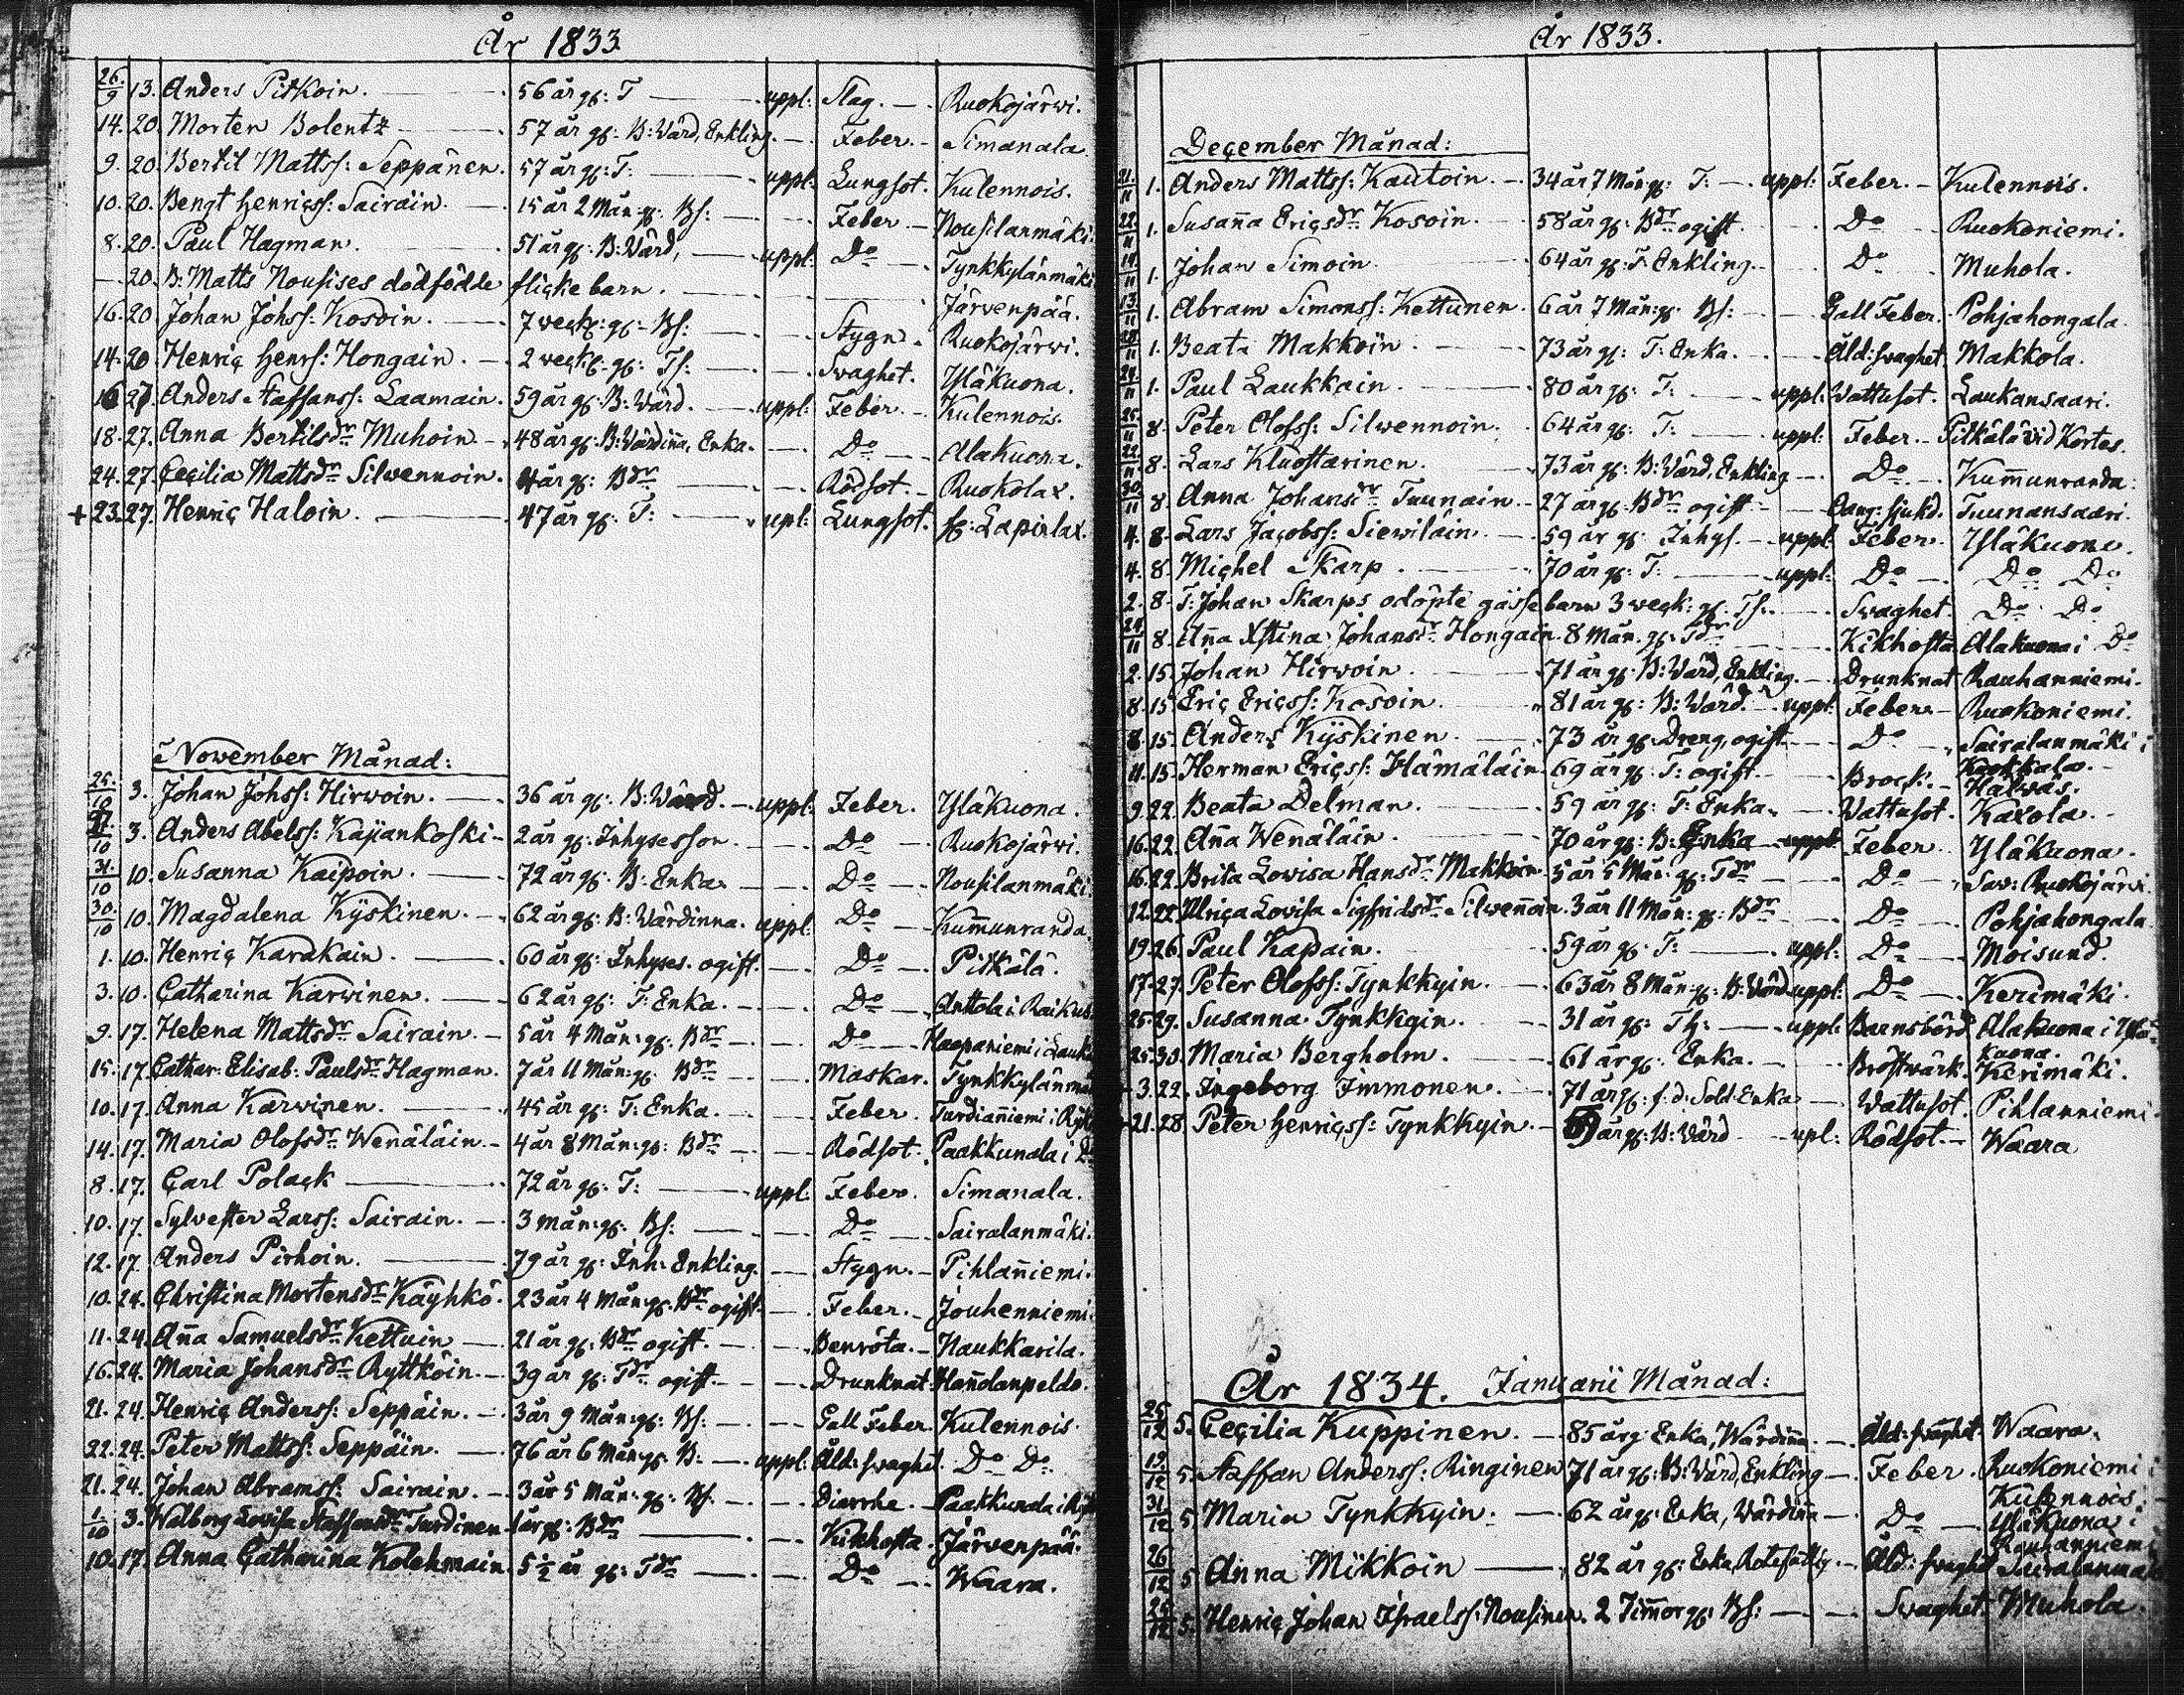 År 1833
26/9 13. Anders Pitkoin. 56 år gl: T uppl: Slag. Ruokojärvi.
14. 20. Morten Bolentz 57 år gl: B: Värd, Enkling. Feber. Simanala.
9. 20. Bertil Mattss: Seppänen. 57 år gl: T: uppl: Lungsot. Kulennois.
10. 20. Bengt Henricss: Sairain. 15 år 2 Mån: gl: Bs: Feber Nousilanmäki.
8. 20. Paul Hagman. 51 år gl: B: Värd, uppl: Do Tynkkylänmäki
20. B: Matts Nousises dödfödde flicke barn. Järvenpää.
16. 20. Johan Johss: Kosoin. 7 veck: gl: Bs: Stygn. Ruokojärvi.
14. 20 Henric Henrs: Hongain. 2 veck: gl: Ts: Svaghet. Yläkuona.
16 27. Anders Staffanss: Laamain. 59 år gl: B: Värd. uppl: Feber Kulennois.
18. 27. Anna Bertilsdr Muhoin 48 år gl: B: Värdiña, Enka. Do Alakuona.
24. 27. Cecilia Mattsdr Silwennoin. 4 år gl: Bdr Rödsot. Ruokolax.
+ 23. 27. Henric Haloin. 47 år gl: T: upl: Lungsot. Lapinlax.
November Månad:
25/10 3. Johan Johss: Hirvoin. 36 år gl: B: Värd. uppl: Feber. Yläkuona.
3. Anders Abelss: Kajjankoski 2 år gl: Inhysesson. Do Ruokojärvi.
31/10 10. Susanna Kaipoin. 72 år gl: B: Enka. Do Nousilanmäki.
30/10 10. Magdalena Kyskinen. 62 år gl: B: Värdinna. uppl: Do Kum̃unranda.
1. 10. Henric Karakain. 60 år gl: Inhyses. ogift. Do Pitkälä.
3. 10. Catharina Karwinen. 62 år gl: T: Enka. Do Anttola i Raikuu
9. 17. Helena Mattsdr Sairain. 5 år 4 Mån: gl: Bdr Do Haapaniemi i Lauk
15. 17. Cathar: Elisab: Paulsdr Hagman. 7 år 11 Mån: gl: Bdr Maskar. Tynkkylänmä
10. 17. Anna Karwinen. 45 år gl: T: Enka. Feber. Turdiañiemi i
14. 17. Maria Olofsdr Wenäläin. 4 år 8 Mån: gl: Bdr Rödsot. Paakkunala i Do
8. 17. Carl Polack 72 år gl: T: uppl: Feber. Simanala.
10. 17. Sylvester Larss: Sairain. 3 Mån: gl: Bs: Do Sairalanmäki.
12. 17. Anders Pirhoin. 79 år gl: Inh: Enkling. Stygn. Pihlañiemi.
10. 24. Christina Mortensdr Käyhkö. 23 år 4 Mån: gl: Bdr ogift. Feber. Jouhenniemi
11. 24. Aña Samuelsdr Kettuin 21 år gl: Bdr ogift. Benröta. Naukkarila.
16. 24. Maria Johansdr Ryttköin. 39 år gl: Tdr ogift. Drunknat. Hañolanpeldo.
21. 24. Henric Anderss: Seppäin. 3 år 9 Mån: gl: Bs: Gall Feber. Kulennois.
22. 24. Peter Mattss: Seppäin. 76 år 6 Mån gl: B: uppl: Åld: svaghet. Do Do
21. 24. Johan Abramss: Sairain. 3 år 5 Mån: gl: Bs. Diarrhe. Paakkunala i
1/10 3. Walborg Lovisa Staffansdr Turdinen 1 år gl: Bdr Kikhosta. Järvenpää.
10. 17. Anna Catharina Kolehmain. 5 1/2 år gl: Tdr Do Waara.
År 1833.
December Månad:
21/11 1. Anders Mattss: Kautoin. 34 år 7 Mån: gl: T: uppl: Feber. Kulennois.
22/11 1. Susaña Ericsdr Kosoin. 58 år gl: Bdr ogift. Do Ruokoniemi.
19/11 1. Johan Simoin 64 år gl: T: Enkling. Do Muhola.
13/11 1. Abram Simonss: Kettunen. 6 år 7 Mån: gl: Bs: Gall Feber. Pohjahongala.
1. Beata Makkoin 73 år gl: T: Enka. Åld: svaghet. Makkola.
1. Paul Laukkain. 80 år gl: T: uppl: Vattusot. Laukansaari.
25/11 8. Peter Olofss: Silwennoin. 64 år gl: T: uppl: Feber. Pitkälä vid Kortes.
22/11 8. Lars Kluostarinen. 73 år gl: B: Värd, Enkling Do Kum̃unranda.
30/11 8. Anna Johansdr Tuunain 27 år gl: Bdr ogift. Oang: sjukd. Tuunansaari.
4. 8. Lars Jacobss: Siewiläin. 59 år gl: Inhys. uppl: Feber. Yläkuona.
4. 8. Michel Skarp. 70 år gl: T: uppl: Do Do Do
2. 8. T: Johan Skarps odöpte gossebarn 3 veck: gl: Ts: Svaghet. Do Do
8. Aña Xstina Johansdr Hongain. 8 Mån. gl: Tdr Kikhosta Alakuona i Do
2. 15. Johan Hirvoin 71 år gl: B: Värd, Enkling. Drunknat Rauhanniemi.
8. 15. Eric Ericss: Kosoin. 81 år gl: B: Värd. uppl: Feber Ruokoniemi.
8. 15. Anders Kyskinen 73 år gl: Dreng, ogift Do Sairalanmäki i
11. 15. Herman Ericss: Hämäläin 69 år gl: T: ogift. Brock. Halvas.
9. 22. Beata Delman. 59 år gl: T: Enka. Vattusot. Kaxola.
16. 22. Aña Wenäläin. 70 år gl: B: Enka uppl: Feber Yläkuona.
16. 22. Brita Lovisa Hansdr Makkoin 5 år 5 Mån. gl: Tdr Do Sav: Ruokojärvi
12. 22. Ulrica Lovisa Sigfridsdr Silweñoin. 3 år 11 Mån: gl: Bdr Do Pohjahongala
19. 26. Paul Kapain. 59 år gl: T: uppl: Do Moisund.
17. 27. Peter Olofss: Tynkkyin. 63 år 8 Mån: gl: B: Värd uppl: Do Kerimäki.
25. 29. Susanna Tynkkyin. 31 år gl: Th: uppl: Barnsbörd Alakuona i Ylä-
kuona.
25. 30. Maria Bergholm. 61 år gl: Enka. Bröstvärk. Kerimäki.
3. 22. Ingeborg Immonen. 71 år gl: f. d. Sold. Enka Wattusot. Pihlanniemi.
21. 28. Peter Henricss: Tynkkyin. år gl: B: Värd upl: Rödsot. Waara
År 1834. Januarii Månad:
25/12 5. Cecilia Kuppinen. 85 år g: Enka, Wärdiña. Åld: svaghet. Waara.
19/12 5. Staffan Anderss: Ringinen 71 år gl: B: Värd, Enkling Feber. Ruokoniemi i
Kulennois.
31/12 5. Maria Tynkkyin. 62 år gl: Enka, Wärdiña Do Yläkuona i
Rauhanniemi
26/12 5 Anna Mikkoin 82 år gl: Enka, Rotefattig. Åld: svaghet Sairalanmäki
25/12 5. Henric Johan Israelss: Nousinen. 2 Tim̃ar gl: Bs: Svaghet. Muhola.